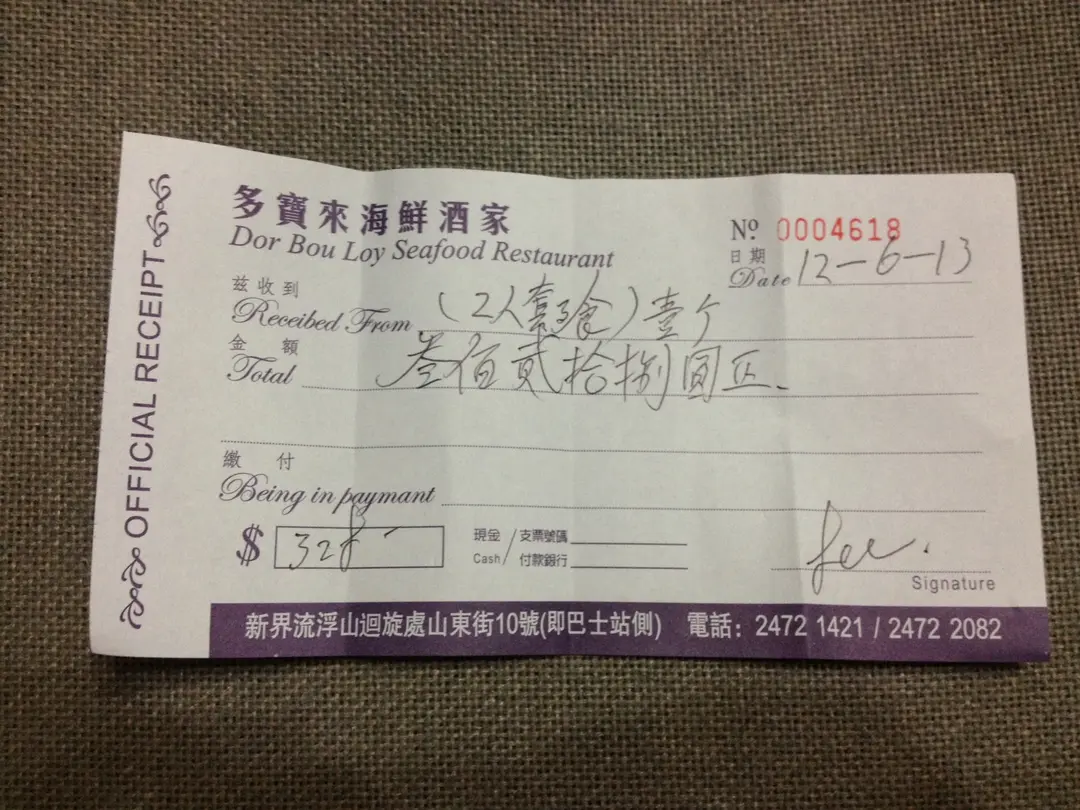 OFFICIAL RECEIPT
多寶來海鮮酒家
Dor Bou Loy Seafood Restaurant
Nº 0004618
日期
Date 12-6-13
茲收到
Receibed From (2人套餐)壹个
金額
Total 叁佰貳拾捌圓正.
繳付
Being in paymant
$ 328-
現金 / 支票號碼
Cash / 付款銀行
Lee.
Signature
新界流浮山迴旋處山東街10號(即巴士站側) 電話: 2472 1421 / 2472 2082